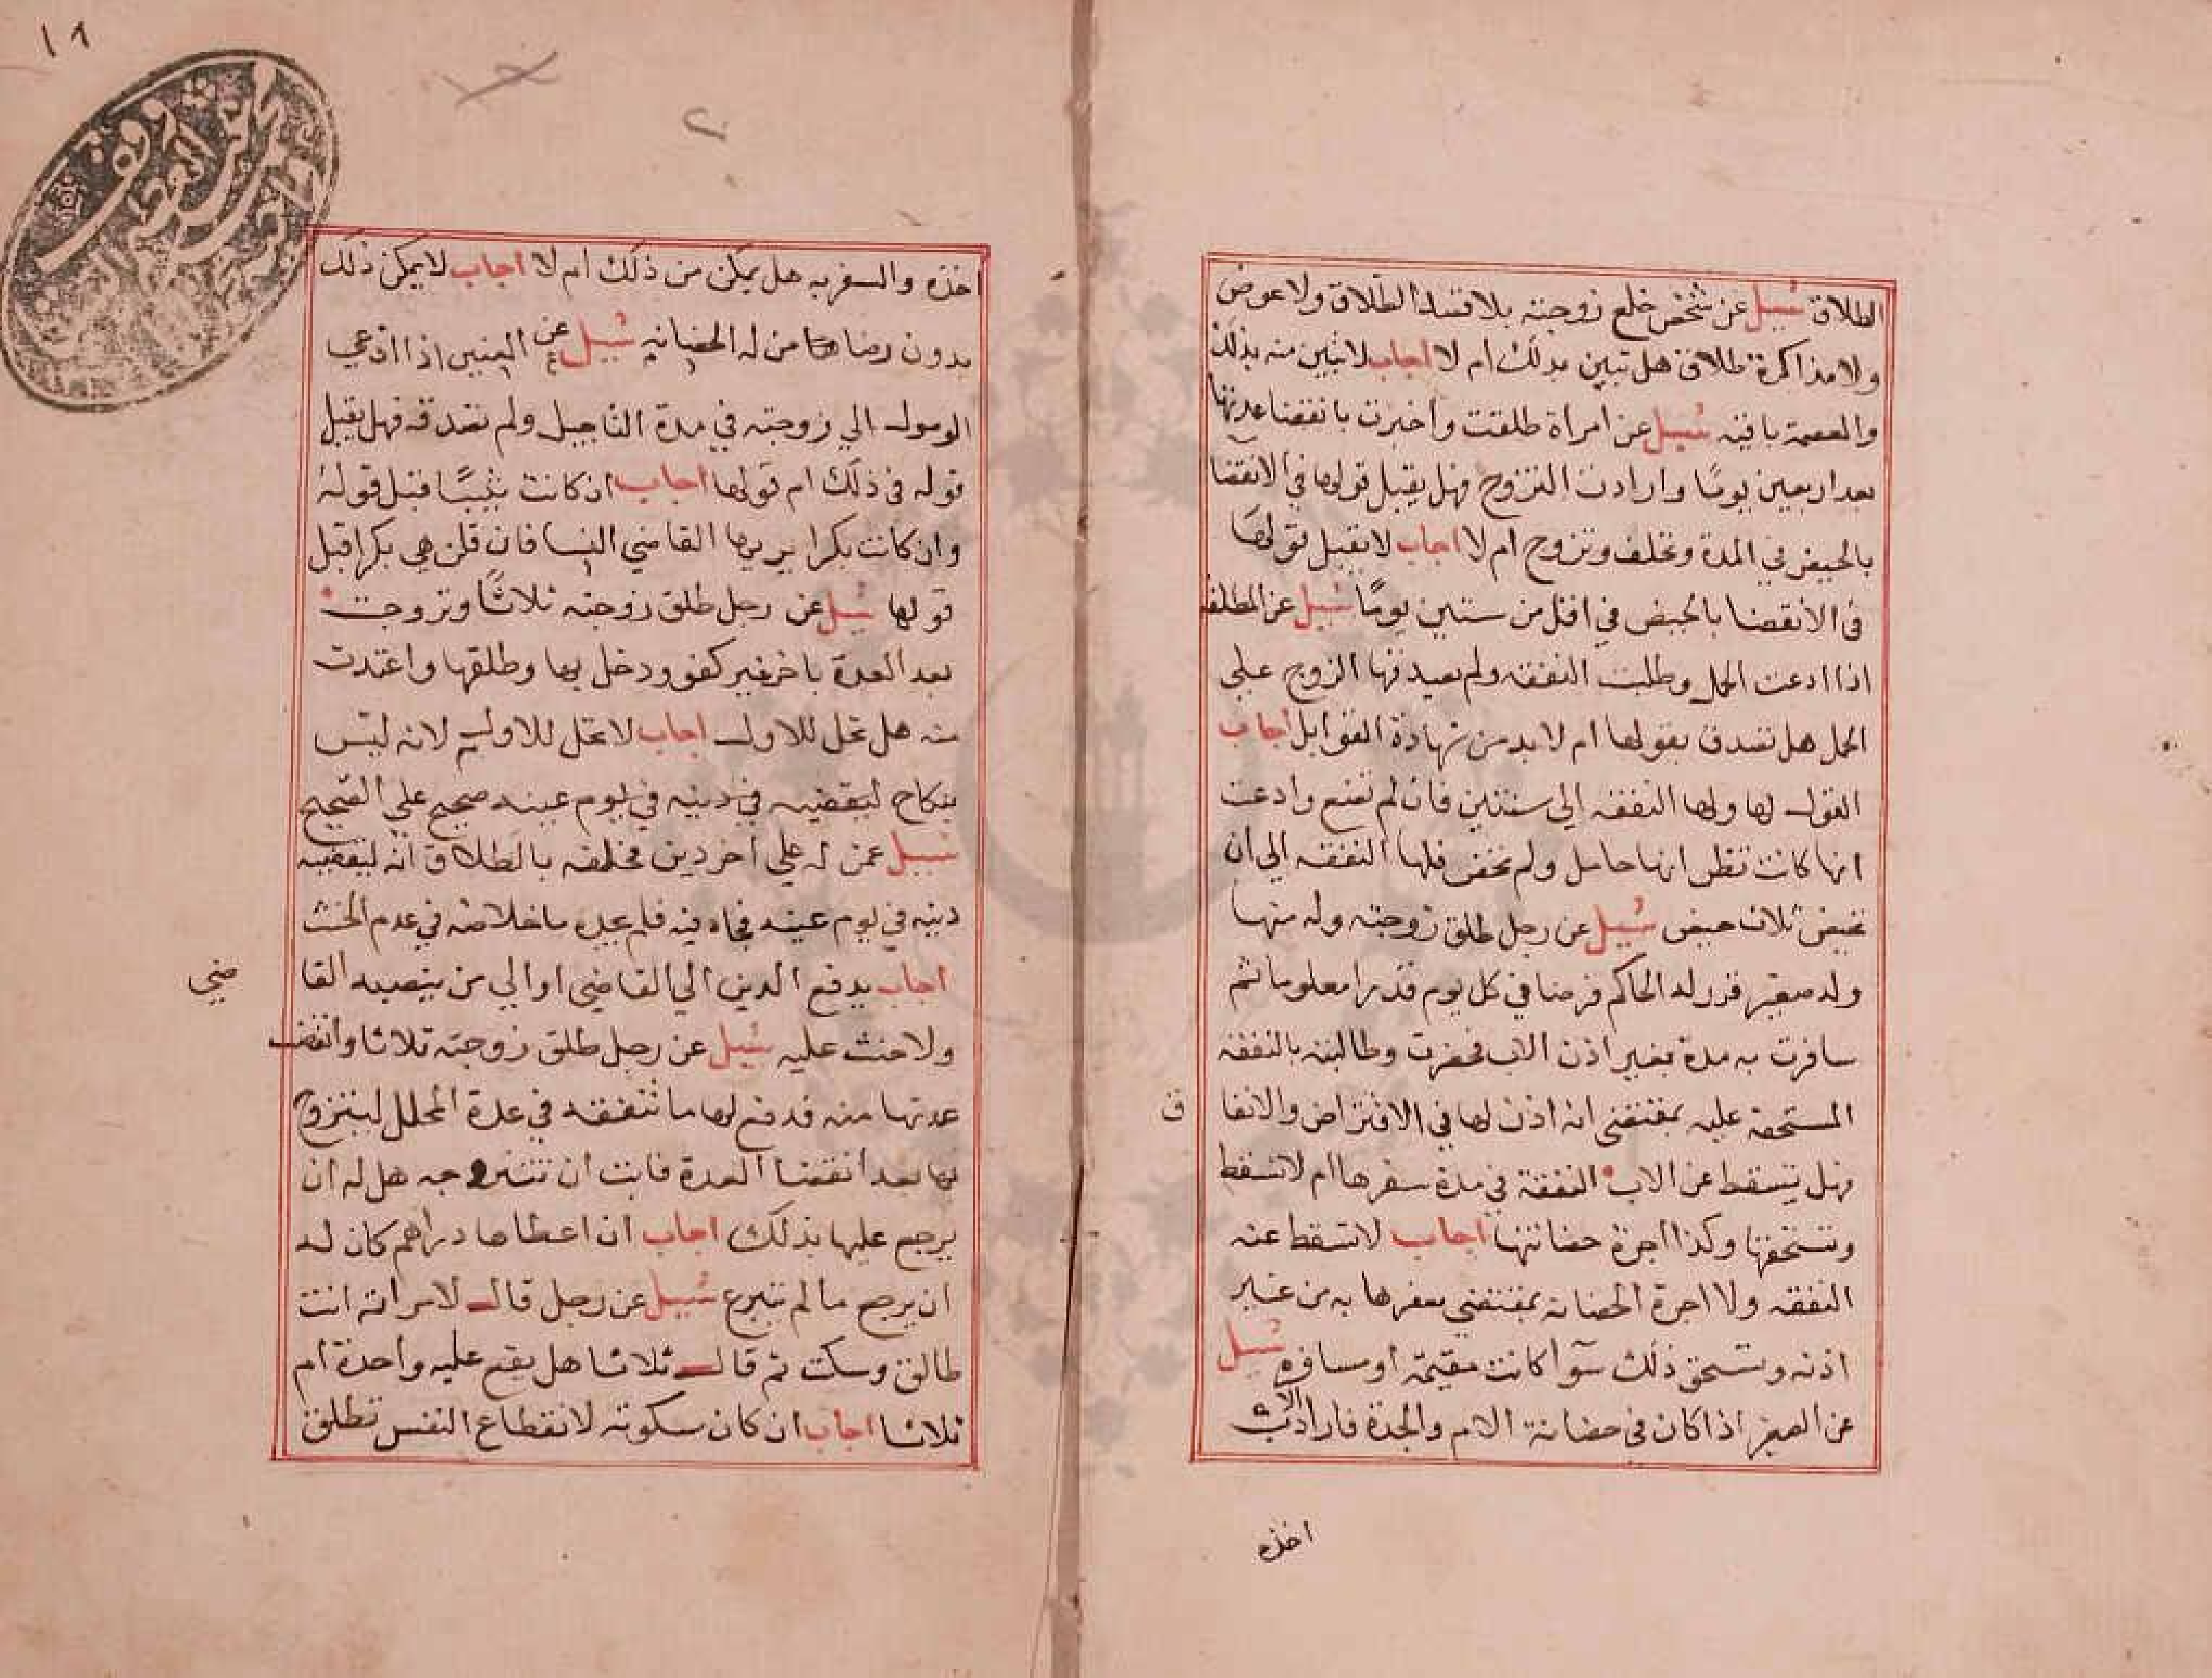 الطلاق سيل عن شخص خلع زوجته بلا قصد الطلاق ولا عوض
ولا مذاكرة طلاق هل تبين بذلك ام لا اجاب لا تبين منه بذلك
والعصمة باقيه سيل عن امراة طلقت واخبرت بانقضا عدتها
بعد اربعين يومًا وارادت التزوج فهل يقبل قولها في الانقضا
بالحيض في المدة وتحلف وتزوج ام لا اجاب لا يقبل قولها
في الانقضا بالحيض في اقل من ستين يومًا سيل عن المطلقة
اذا ادعت الحمل وطلبت النفقه ولم يصدقها الزوج على
الحمل هل تصدق بقولها ام لابد من شهادة القوابل اجاب
القول لها ولها النفقه الي سنتين فان لم تضع وادعت
انها كانت تظن انها حامل ولم تحض فلها النفقه الي ان
تحيض ثلاث حيض سيل عن رجل طلق زوجته وله منها
ولد صغير قرر له الحاكم فرضا في كل يوم قدرا معلوما ثم
سافرت به مدة بغير اذن الاب فحضرت وطالبته بالنفقه
المستحقه عليه بمقتضى انه اذن لها في الاقتراض والانفا
ق
فهل يسقط عن الاب النفقة في مدة سفرها ام لا تسقط
وتستحقها وكذا اجرة حضانتها اجاب لا تسقط عنه
النفقه ولا اجرة الحضانه بمقتضي سفرها به من غير
اذنه وتستحق ذلك سوآ كانت مقيمة او مسافره سيل
عن الصغير اذا كان في حضانة الام والجدة فاراد الاب
اخذه
١٨
وقف
اخذه والسفر به هل يمكن من ذلك ام لا اجاب لا يمكن ذلك
بدون رضا من له الحضانه سيل عن العنين اذا ادعي
الوصول الي زوجته في مدة التاجيل ولم تصدقه فهل يقبل
قوله في ذلك ام قولها اجاب ان كانت ثيبًا قبل قوله
وان كانت بكرا يريها القاضي النسا فان قلن هي بكرا قبل
قولها سيل عن رجل طلق زوجته ثلاثًا وتزوجت
بعد العدة باخر غير كفو ودخل بها وطلقها واعتدت
منه هل تحل للاول اجاب لا تحل للاول لانه ليس
بنكاح ليقضيه في دينه في يوم عينه صحيح علي الصحيح
سيل عمن له علي اخر دين فحلفه بالطلاق انه ليقضيه
دينه في يوم عينه فجاه فيه فلم يجده ما خلاصه في عدم الحنث
اجاب يدفع الدين الي القاضي او الي من ينصبه القا
ضي
ولا حنث عليه سيل عن رجل طلق زوجته ثلاثا وانقضت
عدتها منه فدفع لها ما تنفقه في عدة المحلل ليتزوج
بها بعد انقضا العدة فابت ان تتزوجه هل له ان
يرجع عليها بذلك اجاب ان اعطاها دراهم كان له
ان يرجع ما لم يتبرع سيل عن رجل قال لامراته انت
طالق وسكت ثم قال ثلاثا هل يقع عليه واحدة ام
ثلاثا اجاب ان كان سكوته لانقطاع النفس تطلق